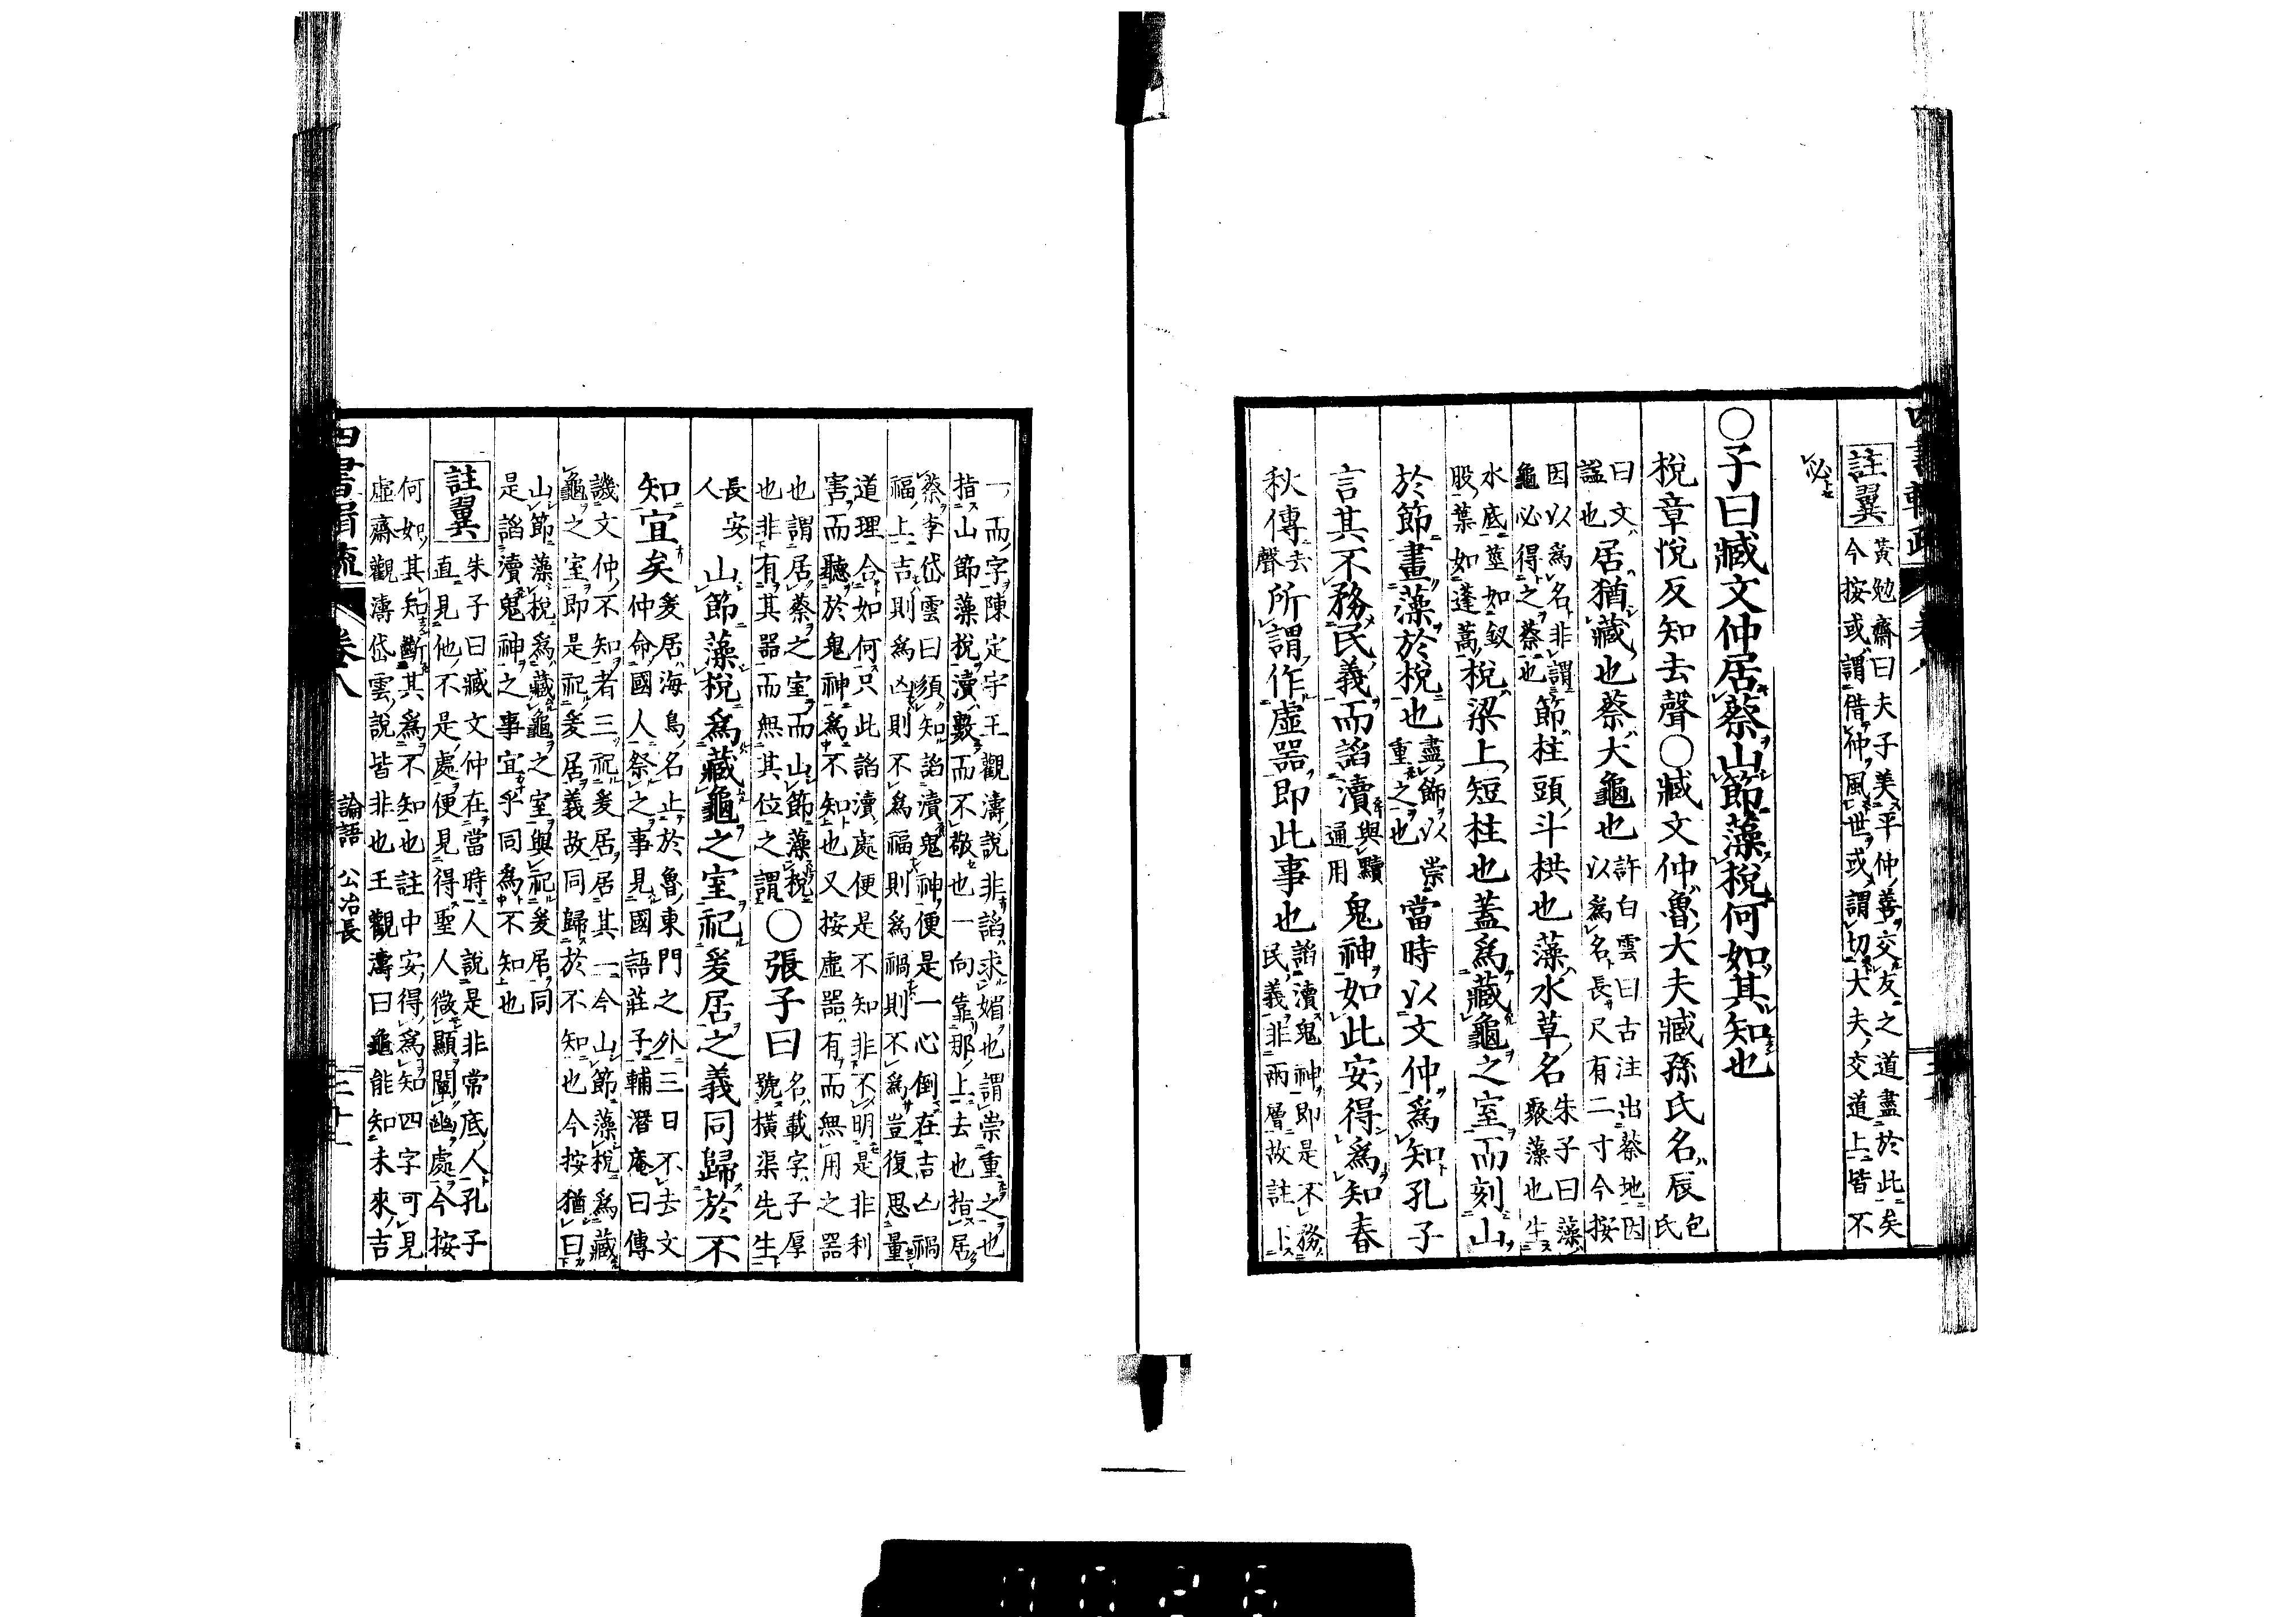 註翼
黃勉齋曰夫子美平仲善交友之道盡於此矣
今按或謂借仲風世或謂切大夫交道上皆不
必
○子曰臧文仲居蔡山節藻梲何如其知也
梲章悅反知去聲○臧文仲魯大夫臧孫氏名辰包氏
曰文
諡也
居猶藏也蔡大龜也
許白雲曰古注出蔡地因
以爲名長尺有二寸今按
因以爲名非謂
龜必得之蔡也
節柱頭斗栱也藻水草名
朱子曰藻
聚藻也生
水底莖如釵
股葉如蓬蒿
梲梁上短柱也蓋爲藏龜之室而刻山
於節畫藻於梲也
盡飾以崇
重之也
當時以文仲爲知孔子
言其不務民義而諂瀆
與黷
通用
鬼神如此安得爲知春
秋傳
去
聲
所謂作虛器即此事也
諂瀆鬼神即是不務
民義非兩層故註上
一而字陳定宇王觀濤說非諂求媚也謂崇重之也
指山節藻梲瀆數而不敬也一向靠那上去也指居
蔡李岱雲曰須知諂瀆鬼神便是一心倒在吉凶禍
福上吉則爲凶則不爲福則爲禍則不爲豈復思量
道理合如何只此諂瀆處便是不知非不明是非利
害而聽於鬼神爲不知也又按虛器有而無用之器
也謂居蔡之室而山節藻梲
也非有其器而無其位之謂
○張子曰
名載字子厚
號橫渠先生
長安
人
山節藻梲爲藏龜之室祀爰居之義同歸於不
知宜矣
爰居海鳥名止於魯東門之外三日不去文
仲命國人祭之事見國語莊子輔潛庵曰傳
譏文仲不知者三祀爰居居其一今山節藻梲爲藏
龜之室即是祀爰居義故同歸於不知也今按猶曰
山節藻梲爲藏龜之室與祀爰居同
是諂瀆鬼神之事宜乎同爲不知也
註翼
朱子曰臧文仲在當時人說是非常底人孔子
直見他不是處便見得聖人微顯闡幽處今按
何如其知斷其爲不知也註中安得爲知四字可見
虛齋觀濤岱雲說皆非也王觀濤曰龜能知未來吉
卷八
論語 公冶長
三十一